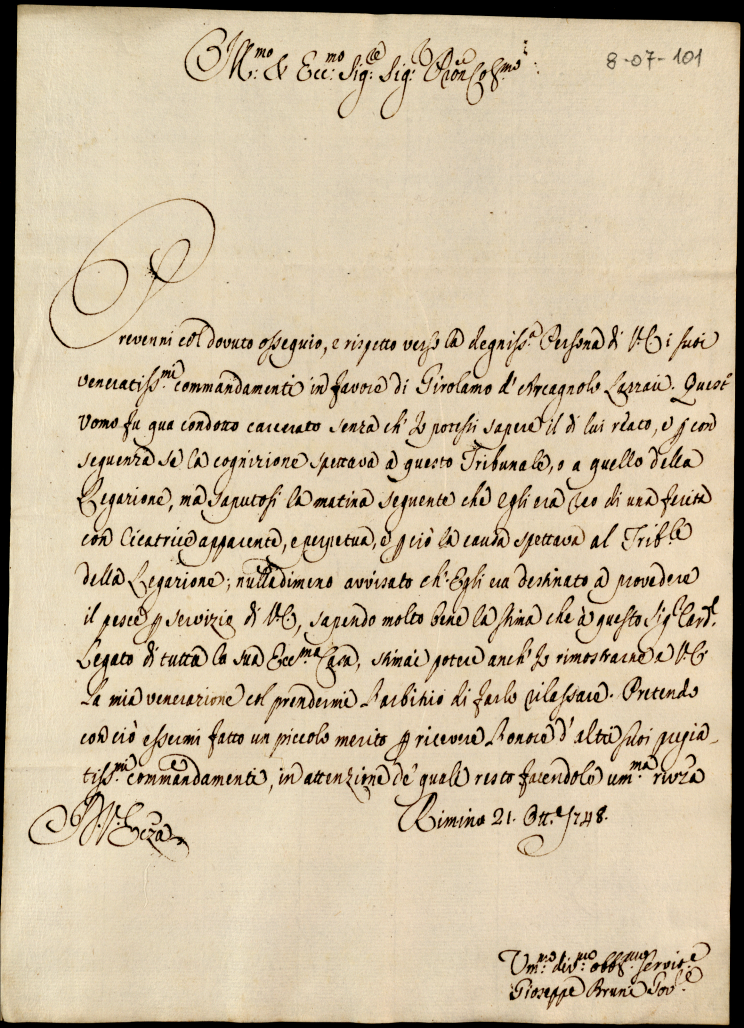 Ill.mo & Ecc.mo Sig.re Sig.r Pron Col.mo
8-07-101
Prevenni col dovuto ossequio, e rispetto verso la degniss.a Persona di V.E. i suoi
veneratiss.mi commandamenti in favore di Girolamo d'Arcagnolo Lazzari. Quest'
Vomo fu qua condotto carcerato senza ch'Io potessi sapere il di lui reato, e p con
seguenza se la cognizione spettava a questo Tribunale, o a quello della
Legazione, ma saputosi la matina seguente che egli era reo di una ferita
con Cicatrice apparente, e perpetua, e p ciò la causa spettava al Trib.le
della Legazione; nulladimeno avvisato ch'Egli era destinato a provedere
il pesce p servizio di V.E., sapendo molto bene la stima che à questo Sig.r Card.l
Legato di tutta la sua Ecc.ma Casa, stimai potere anch'Io rimostrarne a V.E.
la mia venerazione col prendermi l'arbitrio di farlo rilassare. Pretendo
con ciò essermi fatto un piccolo merito p ricevere l'onore d'altri suoi pregia-
tiss.mi commandamenti, in attenzione de quali resto facendole um.ma rivza
D. V. Ecza
Rimino 21. Ott.e 1748.
Um.mo div.mo obbl.mo servit.e
Gioseppe Bruni Gov.re